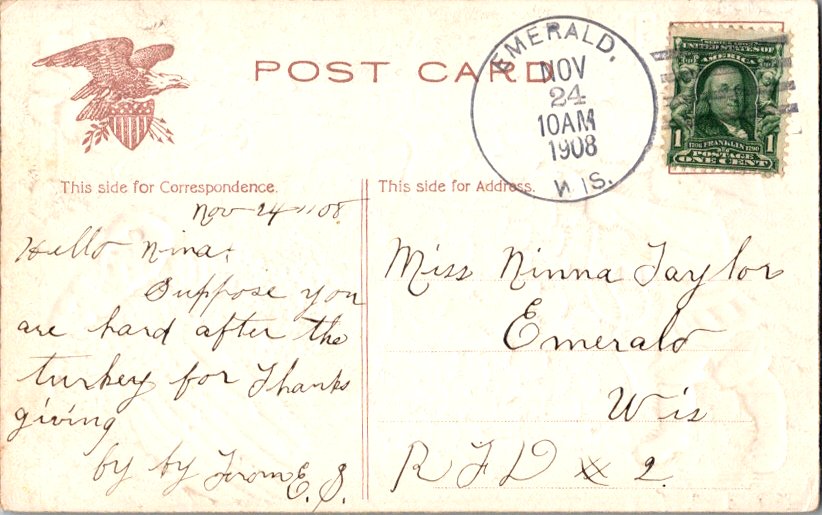 POST CARD
EMERALD,
NOV
24
10AM
1908
WIS.
SERIES 1902
UNITED STATES OF
AMERICA
1706 FRANKLIN 1790
1 1
POSTAGE
ONE CENT
This side for Correspondence.
Nov 24 - 08.
Hello Nina:
Suppose you
are hard after the
turkey for Thanks
giving
by by From E. S.
This side for Address.
Miss Ninna Taylor
Emerald
Wis
R F D x 2.